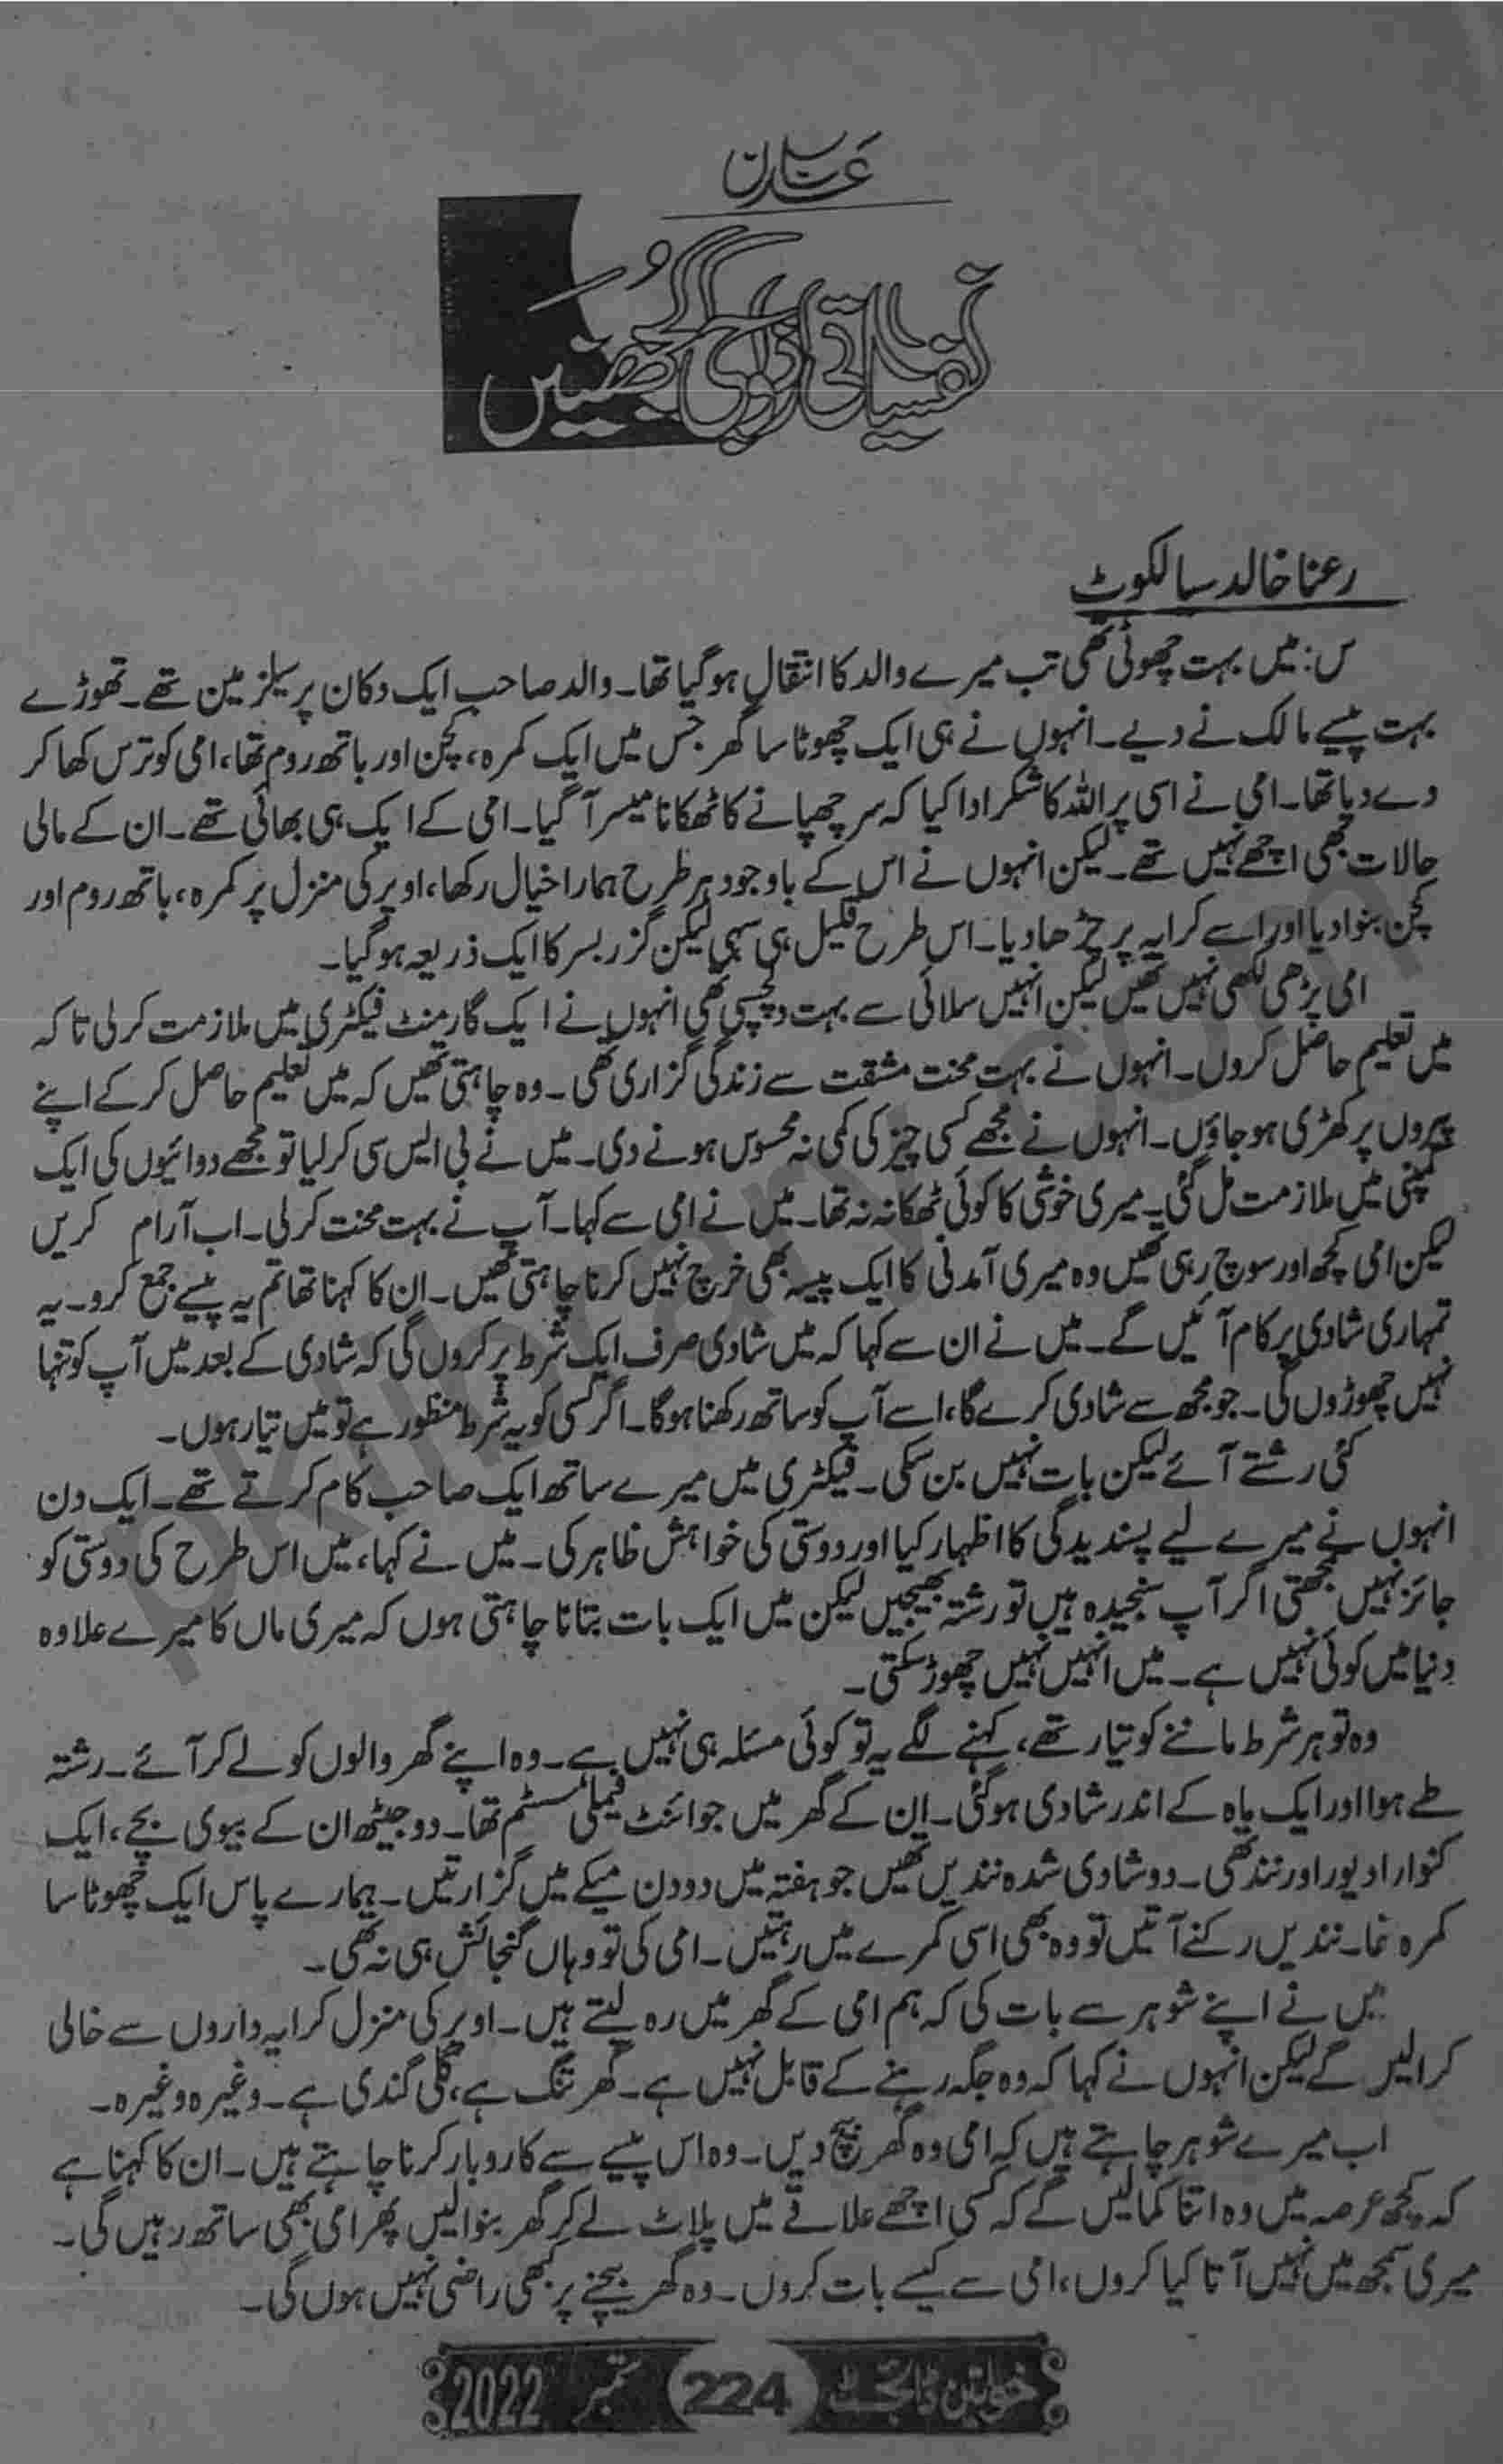 عدنان
نفسیاتی ازدواجی الجھنیں
رعنا خالد سیالکوٹ
س: میں بہت چھوٹی تھی تب میرے والد کا انتقال ہو گیا تھا۔ والد صاحب ایک دکان پر سیلز مین تھے۔ تھوڑے
بہت پیسے مالک نے دیے۔ انہوں نے ہی ایک چھوٹا سا گھر جس میں ایک کمرہ، کچن اور باتھ روم تھا، امی کو ترس کھا کر
دے دیا تھا۔ امی نے اسی پر اللہ کا شکر ادا کیا کہ سر چھپانے کا ٹھکانا میسر آ گیا۔ امی کے ایک ہی بھائی تھے۔ ان کے مالی
حالات بھی اچھے نہیں تھے۔ لیکن انہوں نے اس کے باوجود ہر طرح ہمارا خیال رکھا، اوپر کی منزل پر کمرہ، باتھ روم اور
کچن بنوا دیا اور اسے کرایہ پر چڑھا دیا۔ اس طرح قلیل ہی سہی لیکن گزر بسر کا ایک ذریعہ ہو گیا۔
امی پڑھی لکھی نہیں تھیں لیکن انہیں سلائی سے بہت دلچسپی تھی انہوں نے ایک گارمنٹ فیکٹری میں ملازمت کر لی تاکہ
میں تعلیم حاصل کروں۔ انہوں نے بہت محنت مشقت سے زندگی گزاری تھی۔ وہ چاہتی تھیں کہ میں تعلیم حاصل کر کے اپنے
پیروں پر کھڑی ہو جاؤں۔ انہوں نے مجھے کسی چیز کی کمی نہ محسوس ہونے دی۔ میں نے بی ایس سی کر لیا تو مجھے دوائیوں کی ایک
کمپنی میں ملازمت مل گئی۔ میری خوشی کا کوئی ٹھکانہ نہ تھا۔ میں نے امی سے کہا۔ آپ نے بہت محنت کر لی۔ اب آرام کریں
لیکن امی کچھ اور سوچ رہی تھیں وہ میری آمدنی کا ایک پیسہ بھی خرچ نہیں کرنا چاہتی تھیں۔ ان کا کہنا تھا تم یہ پیسے جمع کرو۔ یہ
تمہاری شادی پر کام آئیں گے۔ میں نے ان سے کہا کہ میں شادی صرف ایک شرط پر کروں گی کہ شادی کے بعد میں آپ کو تنہا
نہیں چھوڑوں گی۔ جو مجھ سے شادی کرے گا، اسے آپ کو ساتھ رکھنا ہوگا۔ اگر کسی کو یہ شرط منظور ہے تو میں تیار ہوں۔
کئی رشتے آئے لیکن بات نہیں بن سکی۔ فیکٹری میں میرے ساتھ ایک صاحب کام کرتے تھے۔ ایک دن
انہوں نے میرے لیے پسندیدگی کا اظہار کیا اور دوستی کی خواہش ظاہر کی۔ میں نے کہا، میں اس طرح کی دوستی کو
جائز نہیں سمجھتی اگر آپ سنجیدہ ہیں تو رشتہ بھیجیں لیکن میں ایک بات بتانا چاہتی ہوں کہ میری ماں کا میرے علاوہ
دنیا میں کوئی نہیں ہے۔ میں انہیں نہیں چھوڑ سکتی۔
وہ تو ہر شرط ماننے کو تیار تھے، کہنے لگے یہ تو کوئی مسئلہ ہی نہیں ہے۔ وہ اپنے گھر والوں کو لے کر آئے۔ رشتہ
طے ہوا اور ایک ماہ کے اندر شادی ہو گئی۔ ان کے گھر میں جوائنٹ فیملی سسٹم تھا۔ دو جیٹھ ان کے بیوی بچے، ایک
کنوارا دیور اور نند تھی۔ دو شادی شدہ نندیں تھیں جو ہفتہ میں دو دن میکے میں گزارتیں۔ ہمارے پاس ایک چھوٹا سا
کمرہ تھا۔ نندیں رکنے آتیں تو وہ بھی اسی کمرے میں رہتیں۔ امی کی تو وہاں گنجائش ہی نہ تھی۔
میں نے اپنے شوہر سے بات کی کہ ہم امی کے گھر میں رہ لیتے ہیں۔ اوپر کی منزل کرایہ داروں سے خالی
کرالیں گے لیکن انہوں نے کہا کہ وہ جگہ رہنے کے قابل نہیں ہے۔ گھر تنگ ہے، گلی گندی ہے۔ وغیرہ وغیرہ۔
اب میرے شوہر چاہتے ہیں کہ امی وہ گھر بیچ دیں۔ وہ اس پیسے سے کاروبار کرنا چاہتے ہیں۔ ان کا کہنا ہے
کہ کچھ عرصہ میں وہ اتنا کما لیں گے کہ کسی اچھے علاقے میں پلاٹ لے کر گھر بنوا لیں پھر امی بھی ساتھ رہیں گی۔
میری سمجھ میں نہیں آتا کیا کروں، امی سے کیسے بات کروں۔ وہ گھر بیچنے پر کبھی راضی نہیں ہوں گی۔
خواتین ڈائجسٹ 224 ستمبر 2022